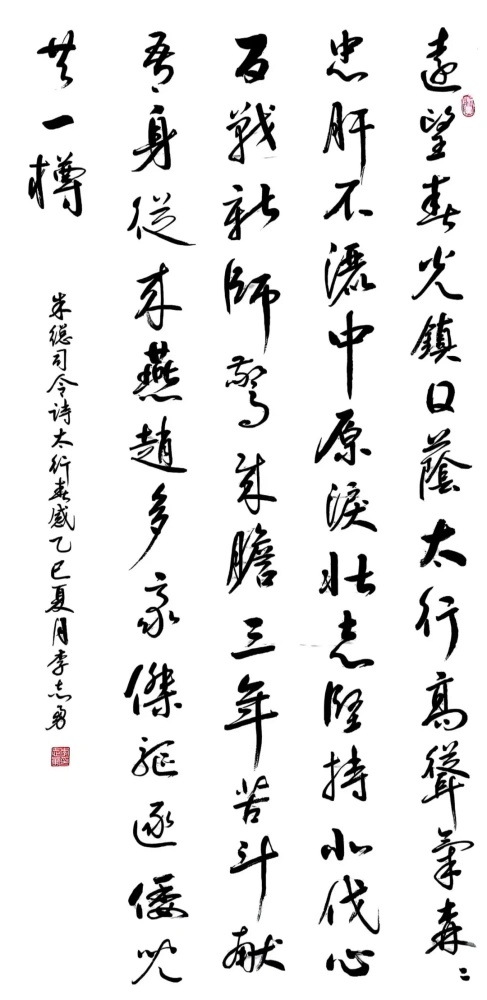 遠望春光鎮日蔭太行高聳氣森〻
忠肝不灑中原淚壯志堅持北伐心
百戰新師驚賊膽三年苦斗献
吾身從来燕趙多豪傑驅逐倭児
共一樽
朱総司令诗太行春感乙巳夏月李志勇